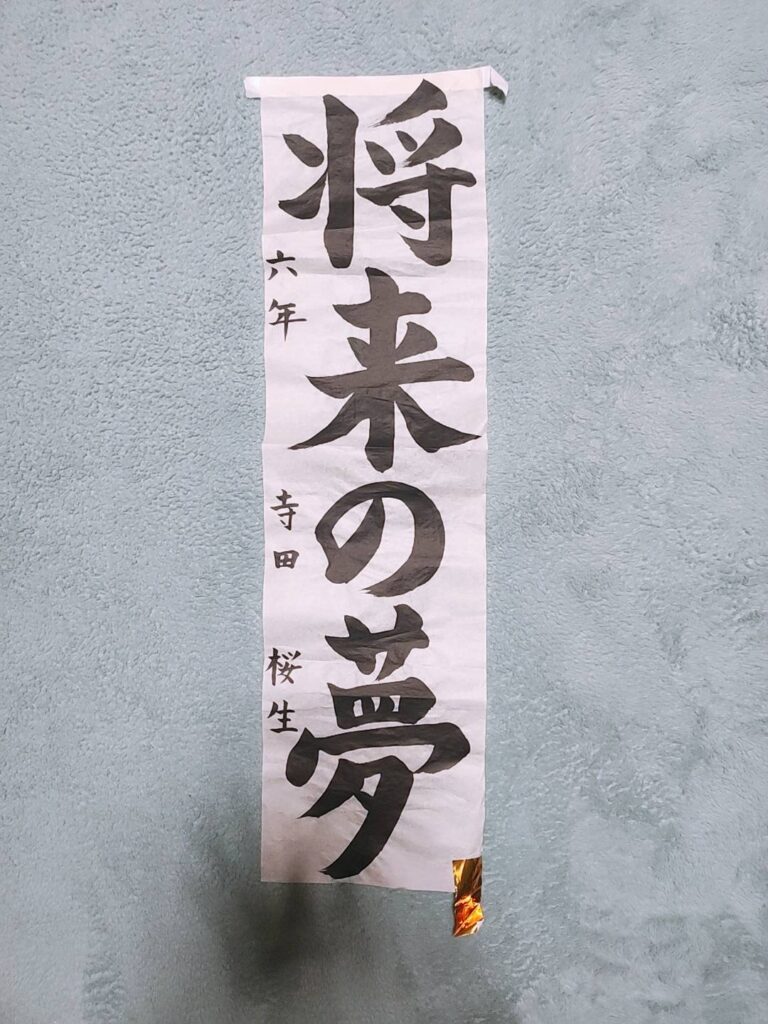 将来の夢
六年 寺田 桜生